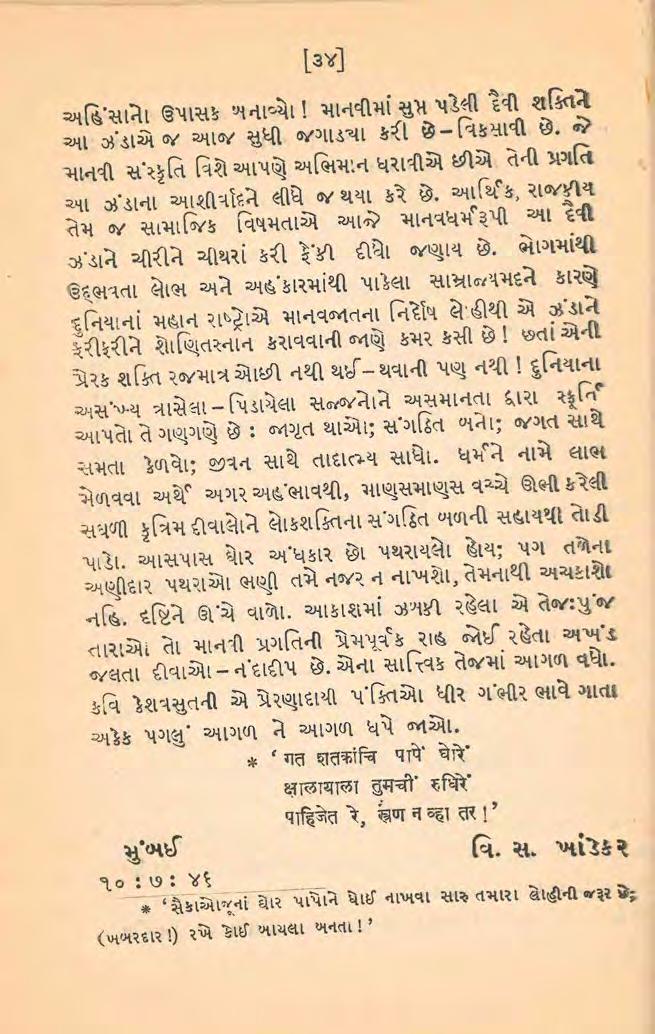 [૩૪]
અહિંસાનો ઉપાસક બનાવ્યો ! માનવીમાં સુપ્ત પડેલી દૈવી શક્તિને
આ ઝંડાએ જ આજ સુધી જગાડ્યા કરી છે – વિકસાવી છે. જે
માનવી સંસ્કૃતિ વિશે આપણે અભિમાન ધરાવીએ છીએ તેની પ્રગતિ
આ ઝંડાના આશીર્વાદને લીધે જ થયા કરે છે. આર્થિક, રાજકીય
તેમ જ સામાજિક વિષમતાએ આજે માનવધર્મરૂપી આ દૈવી
ઝંડાને ચીરીને ચીથરાં કરી ફેંકી દીધો જણાય છે. ભોગમાંથી
ઉદ્ભવતા લોભ અને અહંકારમાંથી પાકેલા સામ્રાજ્યમદને કારણે
દુનિયાનાં મહાન રાષ્ટ્રોએ માનવજાતના નિર્દોષ લોહીથી એ ઝંડાને
ફરીફરીને શોણિતસ્નાન કરાવવાની જાણે કમર કસી છે ! છતાં એની
પ્રેરક શક્તિ રજમાત્ર ઓછી નથી થઈ – થવાની પણ નથી ! દુનિયાના
અસંખ્ય ત્રાસેલા – પિડાયેલા સજ્જનોને અસમાનતા દ્વારા સ્ફૂર્તિ
આપતો તે ગણગણે છે : જાગૃત થાઓ; સંગઠિત બનો; જગત સાથે
સમતા કેળવો; જીવન સાથે તાદાત્મ્ય સાધો. ધર્મને નામે લાભ
મેળવવા અર્થે અગર અહંભાવથી, માણસમાણસ વચ્ચે ઊભી કરેલી
સઘળી કૃત્રિમ દીવાલોને લોકશક્તિના સંગઠિત બળની સહાયથી તોડી
પાડો. આસપાસ ઘોર અંધકાર છો પથરાયલો હોય; પગ તળેના
અણીદાર પથરાઓ ભણી તમે નજર ન નાખશો, તેમનાથી અચકાશો
નહિ. દષ્ટિને ઊંચે વાળો. આકાશમાં ઝબકી રહેલા એ તેજઃપુંજ
તારાઓ તો માનવી પ્રગતિની પ્રેમપૂર્વક રાહ જોઈ રહેતા અખંડ
જલતા દીવાઓ – નંદાદીપ છે. એના સાત્ત્વિક તેજમાં આગળ વધો.
કવિ કેશવસુતની એ પ્રેરણાદાયી પંક્તિઓ ધીર ગંભીર ભાવે ગાતા
અકેક પગલું આગળ ને આગળ ધપે જાઓ.
* ‘ गत शतकांचि पापें घोरें
क्षालायाला तुमचीं रुधिरें
पाहिजेत रे, स्त्रैण न व्हा तर !’
મુંબઈ વિ. સ. ખાંડેકર
૧૦ : ૭ : ૪૬
* ‘સૈકાઓજૂનાં ઘોર પાપોને ધોઈ નાખવા સારુ તમારા લોહીની જરૂર છે;
(ખબરદાર !) રખે કોઈ બાયલા બનતા ! ’